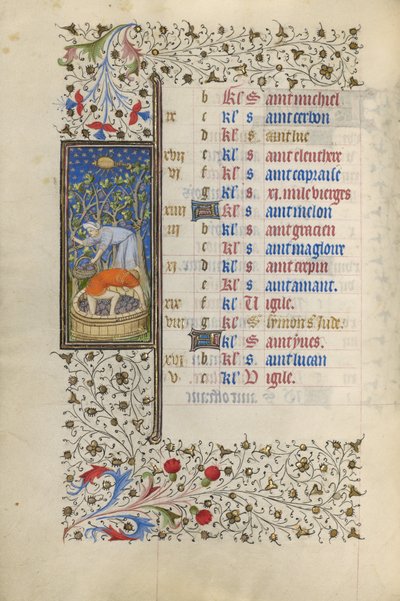 b kl' Saint michiel
ix c kl' saint cerbon
d kl' saint luc
xvii e kl' saint eleuthere
vi f kl' saint capraise
g kl' s. xi. mile vierges
xiiii A kl' saint melon
iii b kl' saint gracien
c kl' saint magloire
xi d kl' saint crepin
e kl' saint amant.
xix f kl' Vigile.
viii g kl' S symon s. Jude.
A kl' Saint yues.
xvi b kl' saint lucan
v c kl' Vigile.